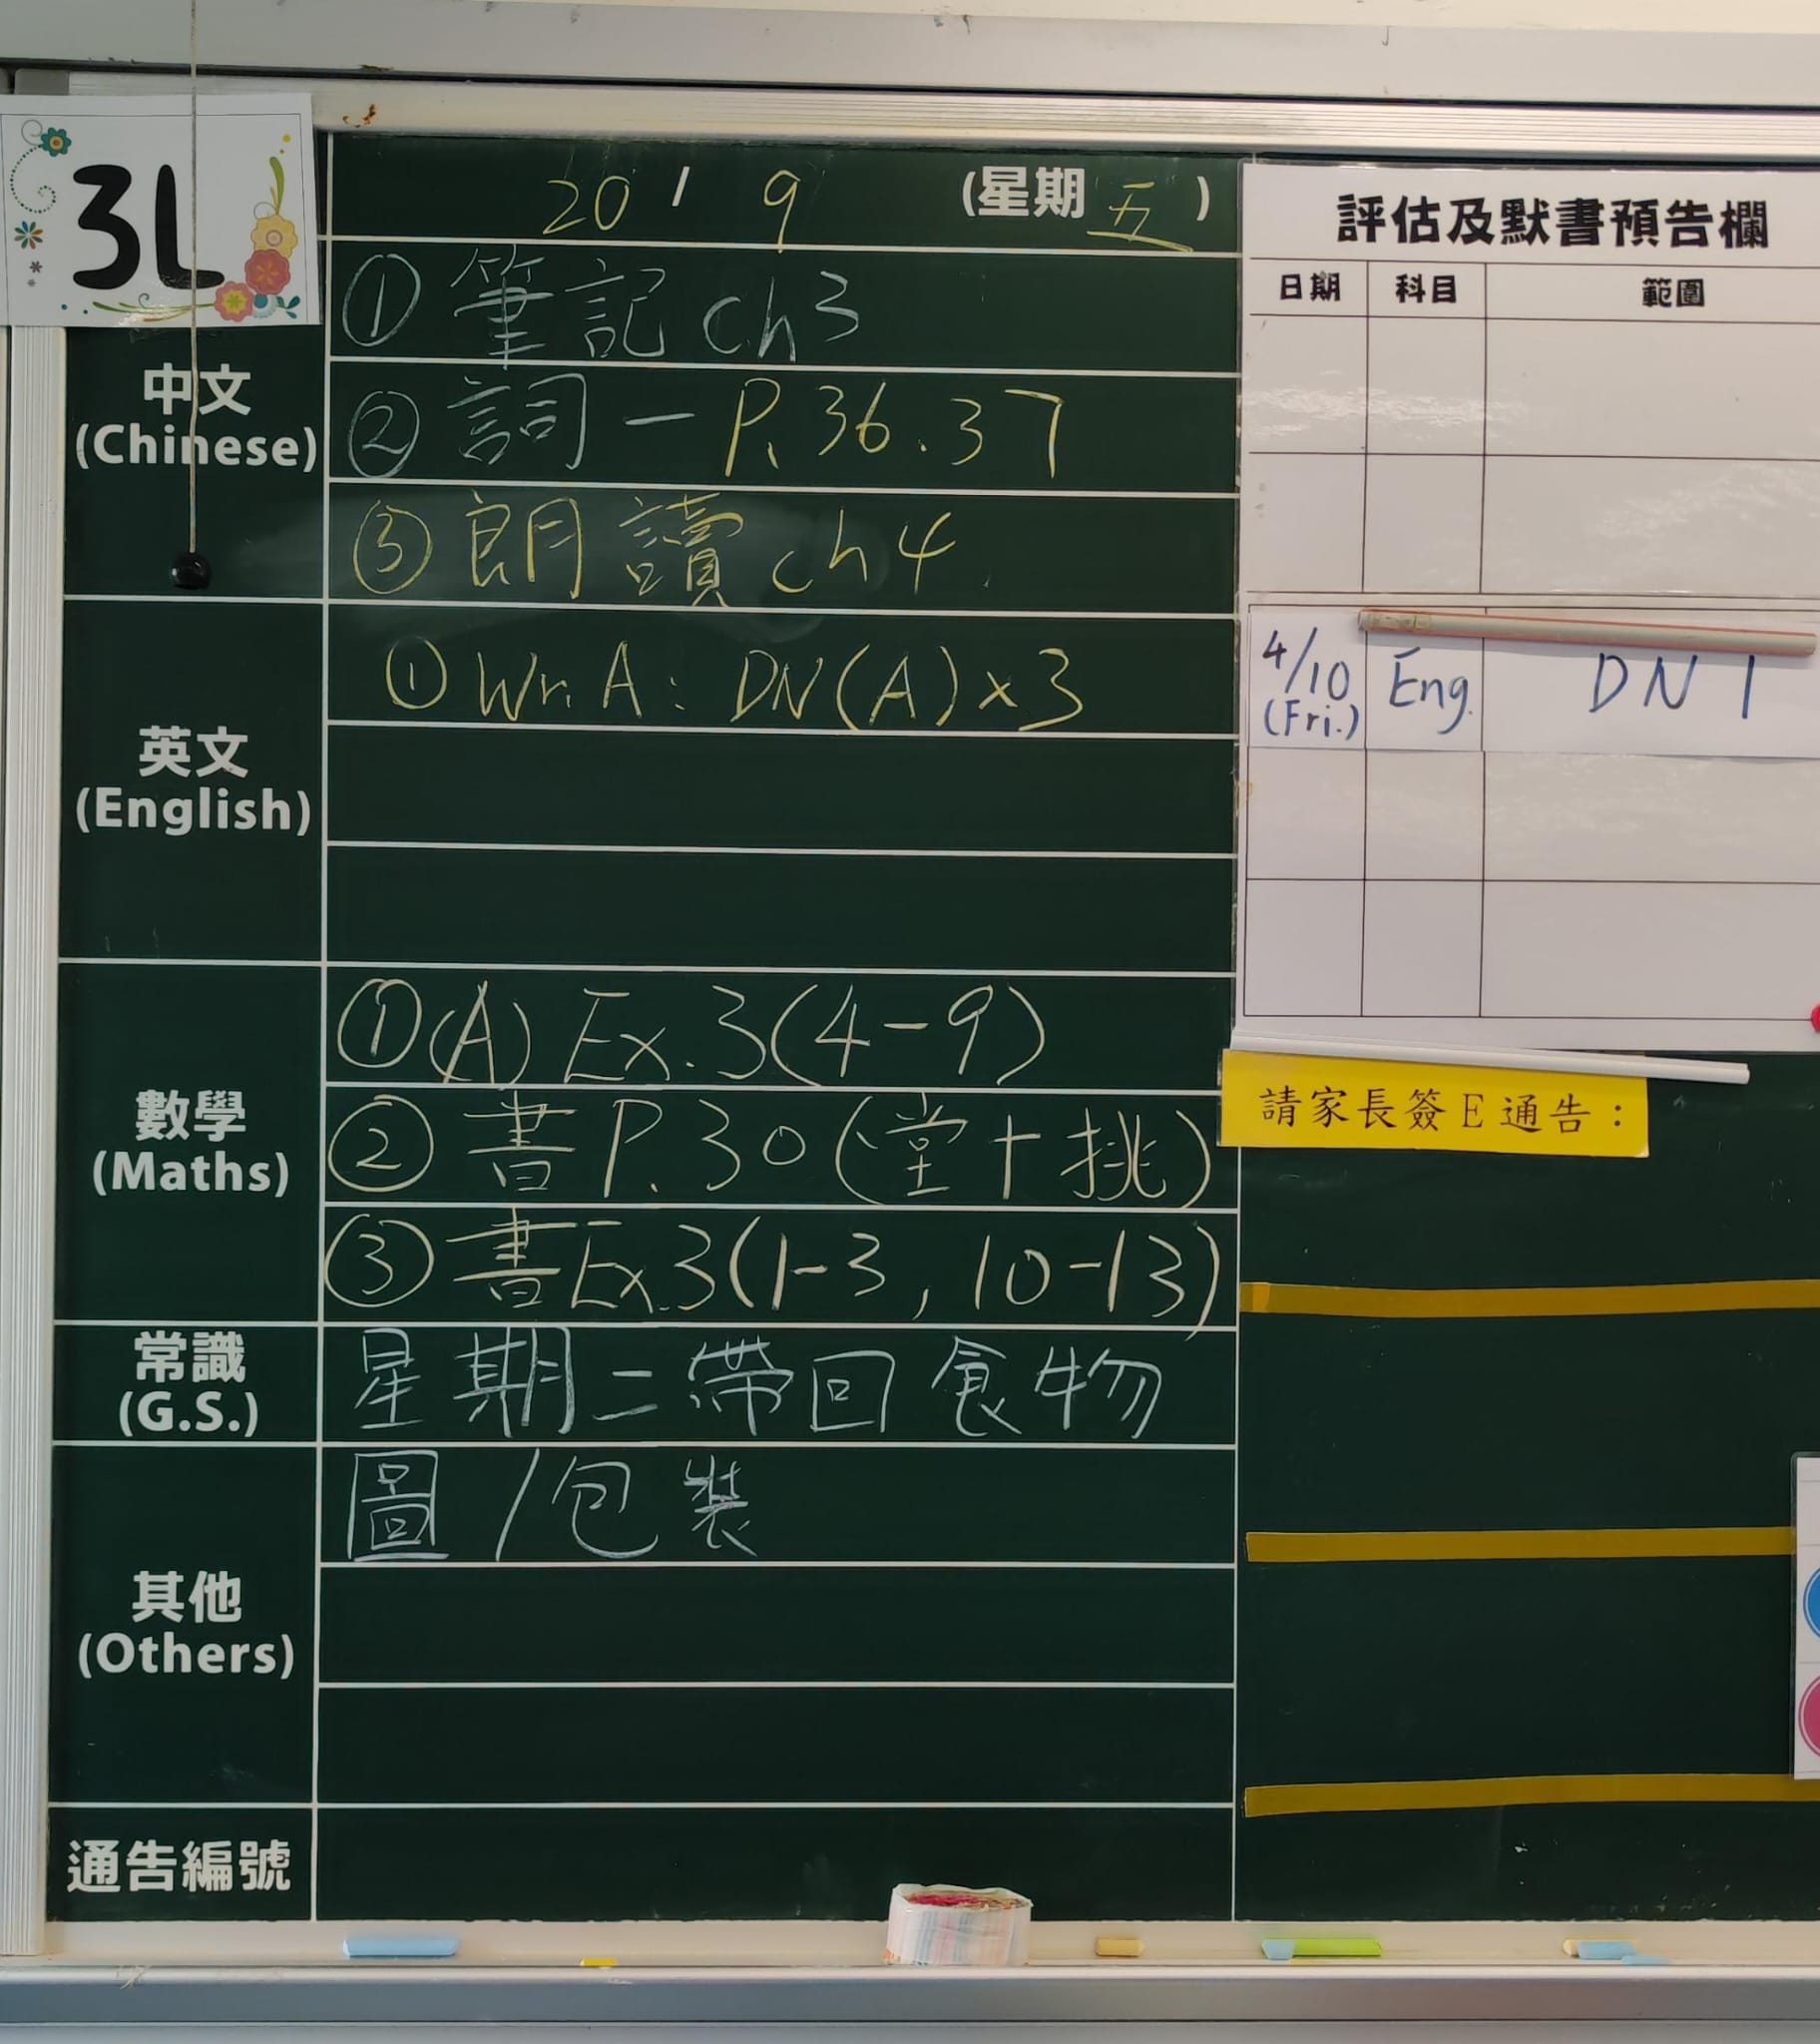 3L
20 / 9 (星期五)
中文
(Chinese)
① 筆記 ch3
② 詞一 P.36.37
③ 朗讀 ch4
英文
(English)
① Wr. A: DN(A)×3
數學
(Maths)
① (A) Ex.3(4-9)
② 書 P.30(堂+挑)
③ 書Ex.3(1-3, 10-13)
常識
(G.S.)
星期二帶回食物
其他
(Others)
圖/包裝
通告編號
評估及默書預告欄
日期 科目 範圍
4/10 (Fri.) Eng. DN 1
請家長簽E通告: